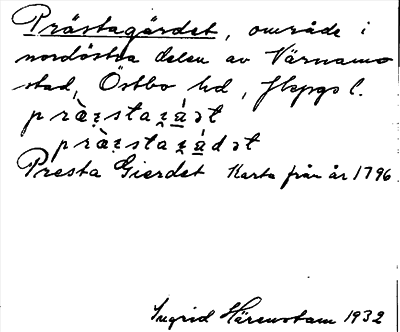 Prästagärdet, område i
nordöstra delen av Värnamo
stad, Östbo hd, Jkpgs l.
præ̀staá̱ət
præ̀staá̱dət
Presta Gierdet Karta från år 1796
Ingrid Härenstam 1932